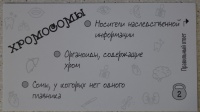 ХРОМОСОМЫ
Носители наследственной
информации
Органоиды, содержащие
хром
Сомы, у которых нет одного
плавника
Правильный ответ
2